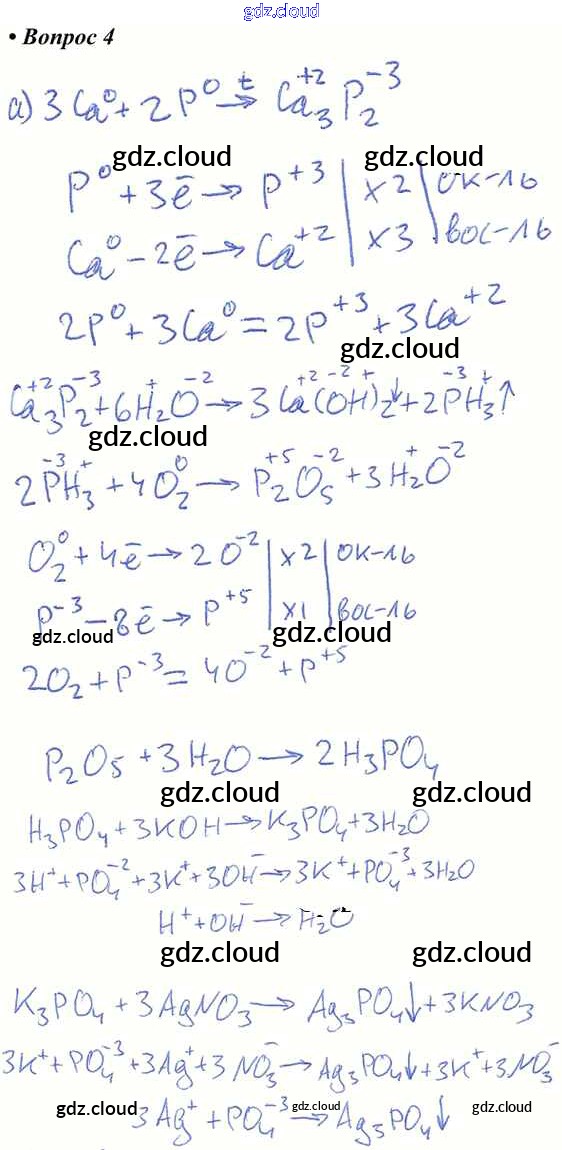 gdz.cloud
• Вопрос 4
а) 3Ca⁰ + 2P⁰ →ᵗ Ca₃⁺²P₂⁻³
gdz.cloud gdz.cloud
P⁰ + 3ē → P⁺³ | x2 | ок-ль
Ca⁰ - 2ē → Ca⁺² | x3 | вос-ль
2P⁰ + 3Ca⁰ = 2P⁺³ + 3Ca⁺²
gdz.cloud
Ca₃⁺²P₂⁻³ + 6H₂⁺O⁻² → 3Ca⁺²(O⁻²H⁺)₂↓ + 2P⁻³H₃⁺↑
gdz.cloud
2P⁻³H₃⁺ + 4O₂⁰ → P₂⁺⁵O₅⁻² + 3H₂⁺O⁻²
O₂⁰ + 4ē → 2O⁻² | x2 | ок-ль
P⁻³ - 8ē → P⁺⁵ | x1 | вос-ль
gdz.cloud gdz.cloud
2O₂ + P⁻³ = 4O⁻² + P⁺⁵
P₂O₅ + 3H₂O → 2H₃PO₄
gdz.cloud gdz.cloud
H₃PO₄ + 3KOH → K₃PO₄ + 3H₂O
3H⁺ + PO₄⁻² + 3K⁺ + 3OH⁻ → 3K⁺ + PO₄⁻³ + 3H₂O
H⁺ + OH⁻ → H₂O
gdz.cloud gdz.cloud
K₃PO₄ + 3AgNO₃ → Ag₃PO₄↓ + 3KNO₃
3K⁺ + PO₄⁻³ + 3Ag⁺ + 3NO₃⁻ → Ag₃PO₄↓ + 3K⁺ + 3NO₃⁻
gdz.cloud gdz.cloud gdz.cloud
3Ag⁺ + PO₄⁻³ → Ag₃PO₄↓